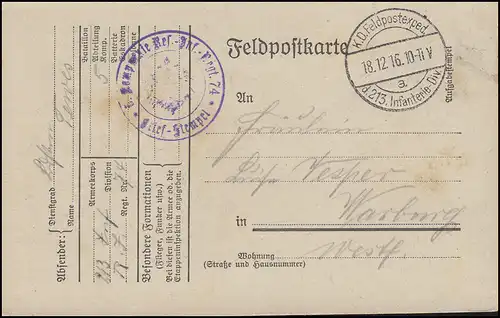 Feldpostkarte
K.D. Feldpostexped.
18.12.16. 10-11 V
a
d. 213. Infanterie-Div.
Aufgabestempel
5. Kompagnie Res.-Inf.-Regt. 74
* Brief-Stempel *
An
Fräulein
Vesper
in Warburg
Westf.
Wohnung
(Straße und Hausnummer)
Absender:
Dienstgrad
Name
Bataillon
Abteilung
Komp.
Batterie
Eskadron
5
Armeekorps
213
Division
Regt. Nr.
74
Besondere Formationen
(Flieger, Funker usw.)
Bei diesen ist die Armee od. die
Etappeninspektion anzugeben.